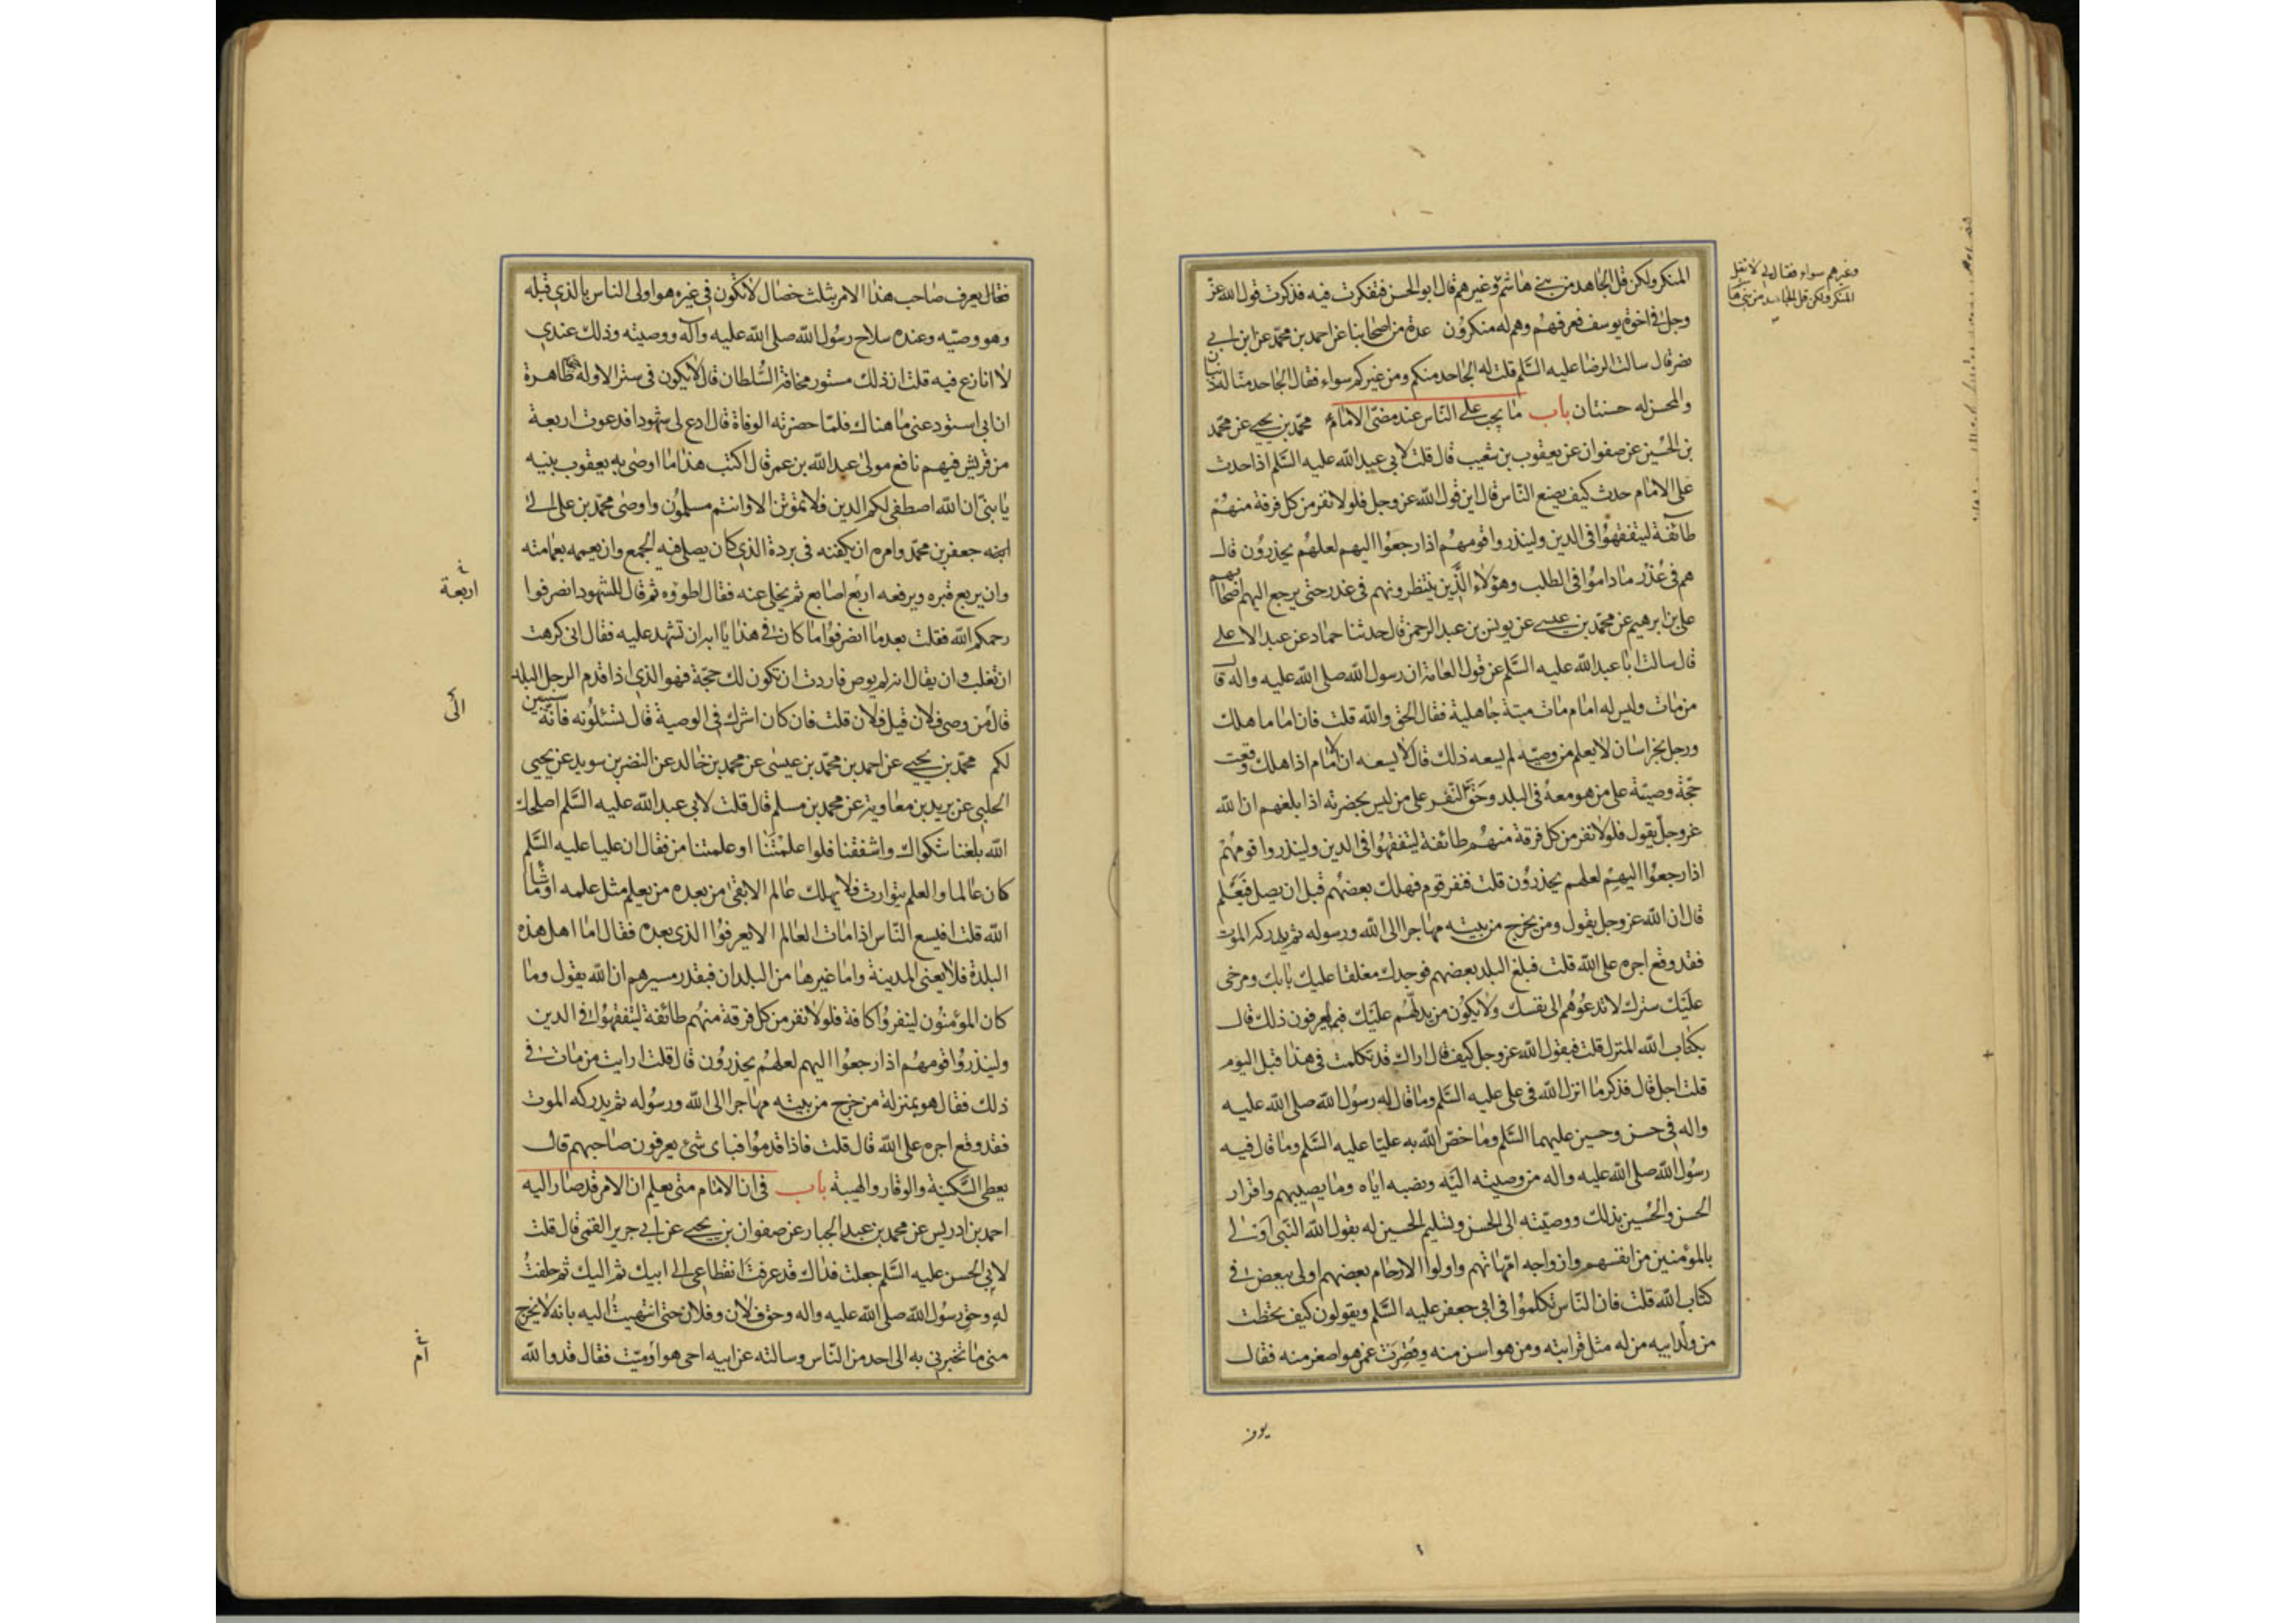 المنكر ولكن قل الجاحد من بني هاشم وغيرهم قال ابو الحسن فتفكرت فيه فذكرت قول الله عز
وجل في اخوة يوسف فعرفهم وهم له منكرون عدة من اصحابنا عن احمد بن محمد عن ابن ابي
نصر قال سالت الرضا عليه السلم قلت له الجاحد منكم ومن غيركم سواء فقال الجاحد منا له ذنبان
والمحسن له حسنتان باب ما يجب على الناس عند مضى الامام محمد بن يحيى عن محمد
بن الحسين عن صفوان عن يعقوب بن شعيب قال قلت لابي عبد الله عليه السلم اذا حدث
على الامام حدث كيف يصنع الناس قال اين قول الله عز وجل فلولا نفر من كل فرقة منهم
طائفة ليتفقهوا في الدين ولينذروا قومهم اذا رجعوا اليهم لعلهم يحذرون قال
هم في عذر ماداموا في الطلب وهؤلاء الذين ينتظرونهم في عذر حتى يرجع اليهم اصحابهم
على بن ابرهيم عن محمد بن عيسى عن يونس بن عبد الرحمن قال حدثنا حماد عن عبد الاعلى
قال سالت ابا عبد الله عليه السلم عن قول العامة ان رسول الله صلى الله عليه واله قال
من مات وليس له امام مات ميتة جاهلية فقال الحق والله قلت فان اماما هلك
ورجل بخراسان لا يعلم من وصيه لم يسعه ذلك قال لا يسعه ان الامام اذا هلك وقعت
حجة وصيته على من هو معه في البلد وحق النفر على من ليس بحضرته اذا بلغهم ان الله
عز وجل يقول فلولا نفر من كل فرقة منهم طائفة ليتفقهوا في الدين ولينذروا قومهم
اذا رجعوا اليهم لعلهم يحذرون قلت فنفر قوم فهلك بعضهم قبل ان يصل فيعلم
قال ان الله عز وجل يقول ومن يخرج من بيته مهاجرا الى الله ورسوله ثم يدركه الموت
فقد وقع اجره على الله قلت فبلغ البلد بعضهم فوجدك مغلقا عليك بابك ومرخى
عليك سترك لا تدعوهم الى نفسك ولا يكون من يدلهم عليك فبم يعرفون ذلك قال
بكتاب الله المنزل قلت فيقول الله عز وجل كيف قال اراك قد تكلمت في هذا قبل اليوم
قلت اجل قال فذكر ما انزل الله في على عليه السلم وما قال له رسول الله صلى الله عليه
واله في حسن وحسين عليهما السلم وما خص الله به عليا عليه السلم وما قال فيه
رسول الله صلى الله عليه واله من وصيته اليه ونصبه اياه وما يصيبهم واقرار
الحسن والحسين بذلك ووصيته الى الحسن وتسليم الحسين له بقول الله النبى اولى
بالمؤمنين من انفسهم وازواجه امهاتهم واولوا الارحام بعضهم اولى ببعض في
كتاب الله قلت فان الناس تكلموا في ابى جعفر عليه السلم ويقولون كيف تخطت
من ولد ابيه من له مثل قرابته ومن هو اسن منه وقصرت عمن هو اصغر منه فقال
وغيرهم سواء فقال لي لا تقل
المنكر ولكن قل الجاحد من بني هاشم
فقال يعرف صاحب هذا الامر بثلث خصال لا تكون في غيره هو اولى الناس بالذي قبله
وهو وصيه وعنده سلاح رسول الله صلى الله عليه وآله ووصيته وذلك عندي
لا انازع فيه قلت ان ذلك مستور مخافة السلطان قال لا يكون في ستر الا وله حجة ظاهرة
ان ابى استودعنى ما هناك فلما حضرته الوفاة قال ادع لى شهودا فدعوت اربعة
من قريش فيهم نافع مولى عبد الله بن عمر قال اكتب هذا ما اوصى به يعقوب بنيه
يا بنى ان الله اصطفى لكم الدين فلا تموتن الا وانتم مسلمون واوصى محمد بن على الى
ابنه جعفر بن محمد وامره ان يكفنه في بردة الذي كان يصلي فيه الجمع وان يعممه بعمامته
وان يربع قبره ويرفعه اربع اصابع ثم يخلى عنه فقال اطووه ثم قال للشهود انصرفوا
رحمكم الله فقلت بعد ما انصرفوا ما كان في هذا يا ابه ان تشهد عليه فقال انى كرهت
ان تغلب وان يقال انه لم يوص فاردت ان تكون لك حجة فهو الذي اذا قدم الرجل البلد
قال من وصى فلان قيل فلان قلت فان كان اشرك في الوصية قال تسئلونه فانه سيبين
لكم محمد بن يحيى عن احمد بن محمد بن عيسى عن محمد بن خالد عن النضر بن سويد عن يحيى
الحلبي عن بريد بن معاوية عن محمد بن مسلم قال قلت لابي عبد الله عليه السلم اصلحك
الله بلغنا شكواك واشفقنا فلو اعلمتنا او علمتنا من فقال ان عليا عليه السلم
كان عالما والعلم يتوارث فلا يهلك عالم الا بقى من بعده من يعلم مثل علمه او ما شاء
الله قلت افيسع الناس اذا مات العالم الا يعرفوا الذي بعده فقال اما اهل هذه
البلدة فلا يعنى المدينة واما غيرها من البلدان فبقدر مسيرهم ان الله يقول وما
كان المؤمنون لينفروا كافة فلولا نفر من كل فرقة منهم طائفة ليتفقهوا في الدين
ولينذروا قومهم اذا رجعوا اليهم لعلهم يحذرون قال قلت ارايت من مات في
ذلك فقال هو بمنزلة من خرج من بيته مهاجرا الى الله ورسوله ثم يدركه الموت
فقد وقع اجره على الله قال قلت فاذا قدموا فباى شئ يعرفون صاحبهم قال
يعطى السكينة والوقار والهيبة باب في ان الامام متى يعلم ان الامر قد صار اليه
احمد بن ادريس عن محمد بن عبد الجبار عن صفوان بن يحيى عن ابي جرير القمي قال قلت
لابى الحسن عليه السلم جعلت فداك قد عرفت انقطاعى الى ابيك ثم اليك ثم حلفت
له وحق رسول الله صلى الله عليه واله وحق فلان وفلان حتى انتهيت اليه بانه لا يخرج
منى ما تخبرني به الى احد من الناس وسالته عن ابيه احى هو او ميت فقال قد والله
اربعة
الى
ام